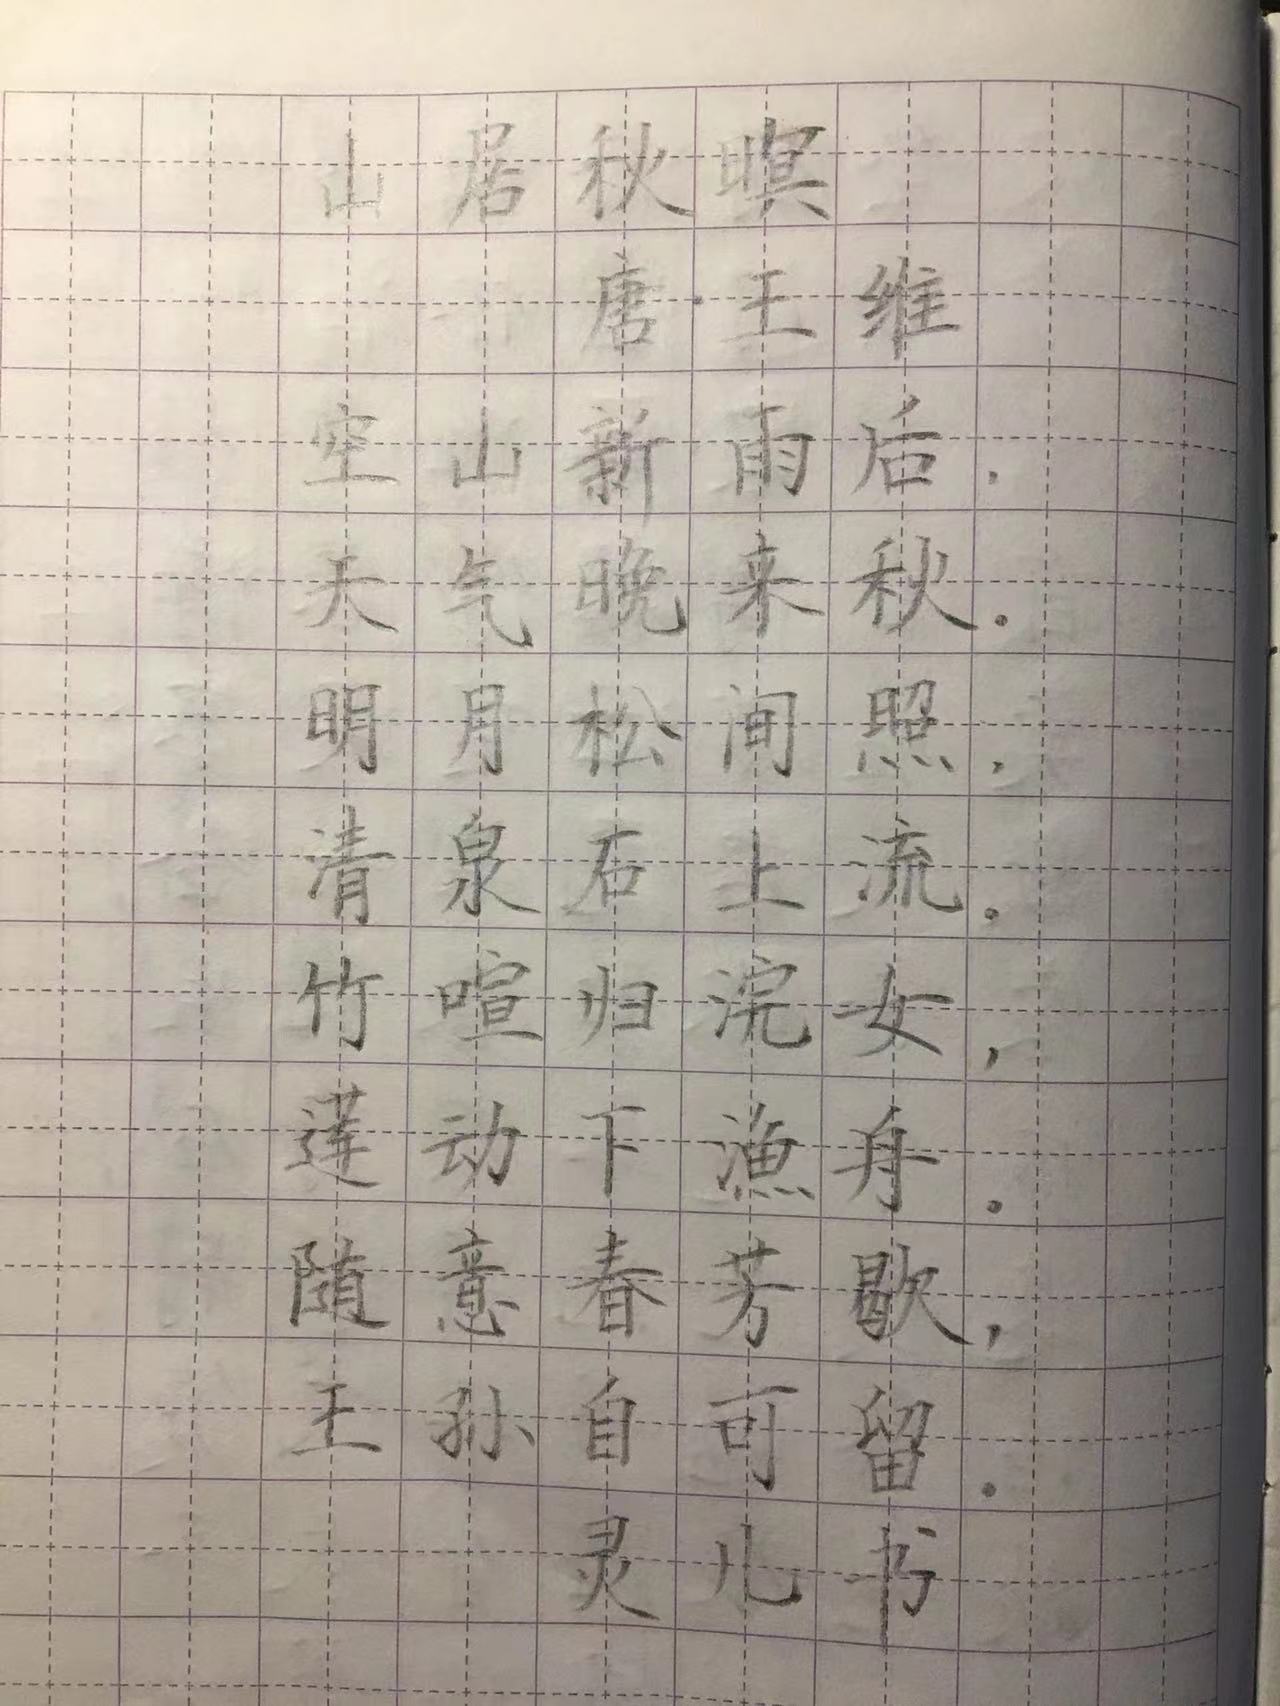 山居秋暝
唐·王维
空山新雨后.
天气晚来秋.
明月松间照,
清泉石上流.
竹喧归浣女,
莲动下渔舟.
随意春芳歇,
王孙自可留.
灵儿书